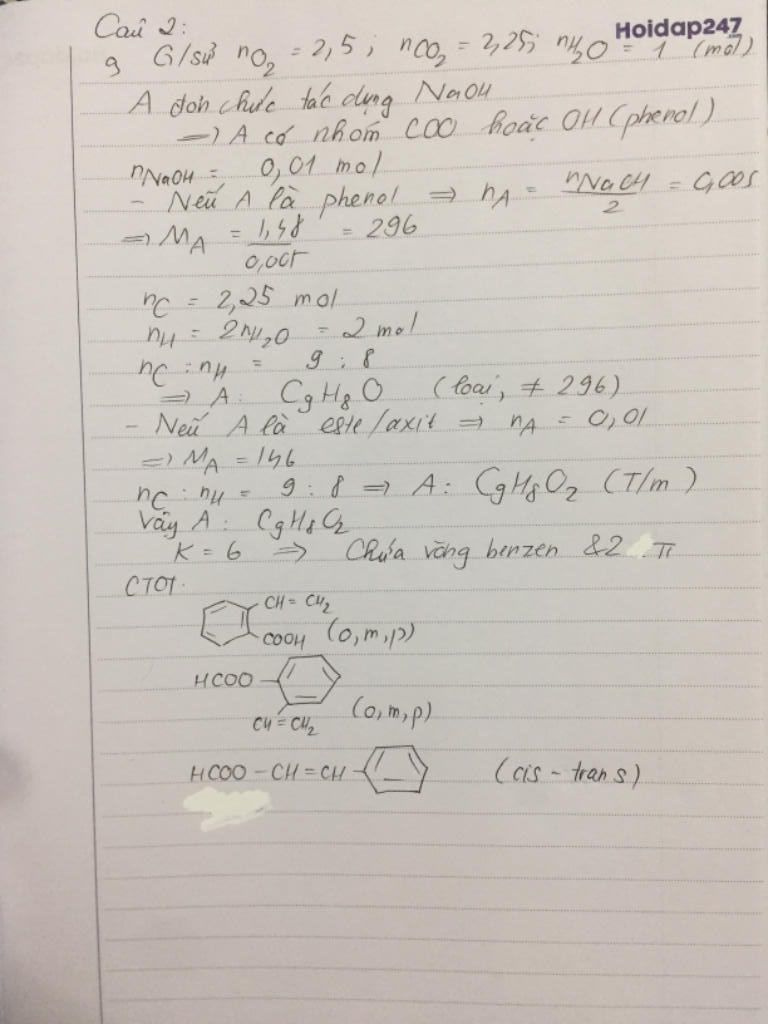 Câu 2:
Hoidap247
a, G/sử nO₂ = 2,5 ; nCO₂ = 2,25; nH₂O = 1 (mol)
A đơn chức tác dụng NaOH
=> A có nhóm COO hoặc OH (phenol)
nNaOH = 0,01 mol
- Nếu A là phenol => nA = nNaOH/2 = 0,005
=> MA = 1,48/0,005 = 296
nC = 2,25 mol
nH = 2nH₂O = 2 mol
nC : nH = 9 : 8
=> A: C₉H₈O (loại, ≠ 296)
- Nếu A là este/axit => nA = 0,01
=> MA = 146
nC : nH = 9 : 8 => A: C₉H₈O₂ (T/m)
Vậy A: C₉H₈O₂
K = 6 => Chứa vòng benzen & 2 π
CTCT:
CH = CH₂
COOH (o, m, p)
HCOO
CH = CH₂ (o, m, p)
HCOO - CH = CH (cis - trans)